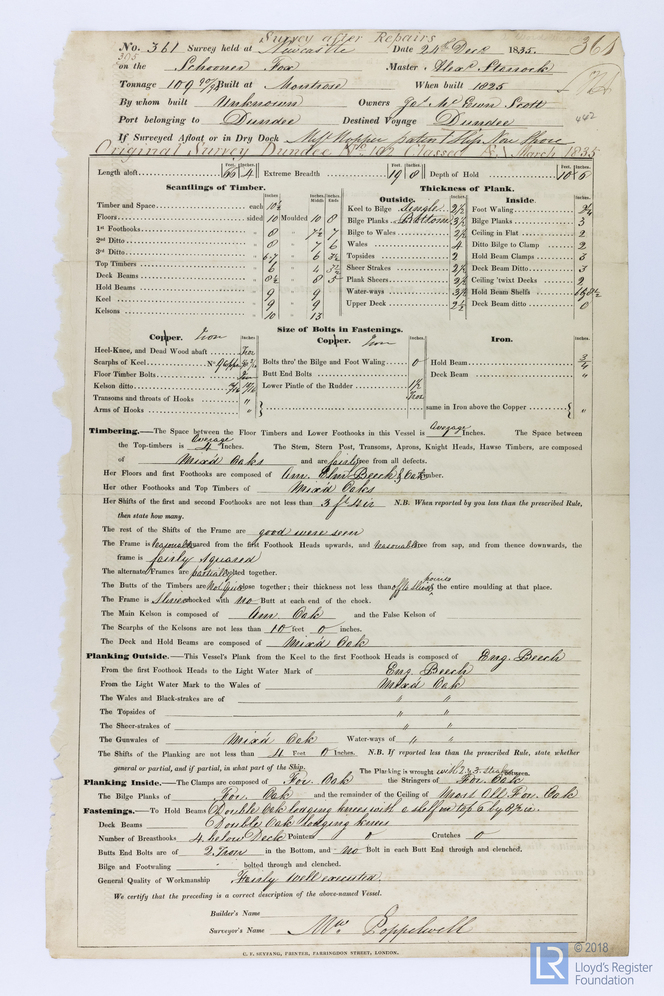 Survey after Repairs
No. 361 Survey held at Newcastle Date 24th Decr 1835. 361
305
on the Schooner Fox Master Alexr Sturrock
Tonnage 109 90/94 Built at Montrose When built 1825
By whom built Unknown Owners Jas Mc Ewen Scott
Port belonging to Dundee Destined Voyage Dundee 442
If Surveyed Afloat or in Dry Dock Slip Nor Shore
Original Survey Dundee No 102 Classed March 1835
Length aloft 66 4 Extreme Breadth 19 8 Depth of Hold 10 5
Feet. Inches. Feet. Inches. Feet. Inches.
Scantlings of Timber. Thickness of Plank.
Outside. Inside.
Timber and Space each 10½ Keel to Bilge single 2½ Foot Waling 2¼
Floors sided 10 Moulded 10 8 Bilge Planks Bottom 3½ Bilge Planks 3
1st Foothooks 8 7½ 7 Bilge to Wales 2½ Ceiling in Flat 2
2nd Ditto 8 7 6 Wales 4 Ditto Bilge to Clamp 2
3rd Ditto 6.7 6 3½ Topsides 2 Hold Beam Clamps 3
Top Timbers 6 4 3½ Sheer Strakes 2½ Deck Beam Ditto 3
Deck Beams 8½ 8 5 Plank Sheers 2½ Ceiling 'twixt Decks 2
Hold Beams 9 9 Water-ways 3½ Hold Beam Shelfs
Keel 9 9 Upper Deck 2½ Deck Beam ditto 0
Kelsons 10 13
Size of Bolts in Fastenings.
Copper. Iron Copper. Iron Iron.
Heel-Knee, and Dead Wood abaft Iron
Scarphs of Keel No Bolts thro' the Bilge and Foot Waling 0 Hold Beam 3/4
Floor Timber Bolts Butt End Bolts Deck Beam "
Kelson ditto Lower Pintle of the Rudder
Transoms and throats of Hooks " Iron
Arms of Hooks " same in Iron above the Copper "
Timbering.—The Space between the Floor Timbers and Lower Foothooks in this Vessel is Average Inches. The Space between
the Top-timbers is Average 4 Inches. The Stem, Stern Post, Transoms, Aprons, Knight Heads, Hawse Timbers, are composed
of Mixd Oaks and are fairly free from all defects.
Her Floors and first Foothooks are composed of Am. Elm Beech & Oak Timber.
Her other Foothooks and Top Timbers of Mixd Oaks
Her Shifts of the first and second Foothooks are not less than 3 ft six N.B. When reported by you less than the prescribed Rule,
then state how many.
The rest of the Shifts of the Frame are good were seen
The Frame is reasonably squared from the first Foothook Heads upwards, and reasonable free from sap, and from thence downwards, the
frame is fairly squared
The alternate Frames are partially bolted together.
The Butts of the Timbers are Not Quite close together; their thickness not less than of the entire moulding at that place.
The Frame is chocked with no Butt at each end of the chock.
The Main Kelson is composed of Am Oak and the False Kelson of
The Scarphs of the Kelsons are not less than 10 feet 0 inches.
The Deck and Hold Beams are composed of Mixd Oak
Planking Outside.—This Vessel's Plank from the Keel to the first Foothook Heads is composed of Eng. Beech
From the first Foothook Heads to the Light Water Mark of Eng. Beech
From the Light Water Mark to the Wales of Mixd Oak
The Wales and Black-strakes are of " "
The Topsides of " "
The Sheer-strakes of " "
The Gunwales of Mixd Oak Water-ways of " "
The Shifts of the Planking are not less than 4 Feet 0 Inches. N.B. If reported less than the prescribed Rule, state whether
general or partial, and if partial, in what part of the Ship. The Planking is wrought with 2 & 3 Strakes between.
Planking Inside.—The Clamps are composed of For. Oak the Stringers of For. Oak
The Bilge Planks of For. Oak and the remainder of the Ceiling of Most All For. Oak
Fastenings.—To Hold Beams Double Oak lodging knees with a shelf on top 6 by 8½ in.
Deck Beams Double Oak lodging knees
Number of Breasthooks 4 below Deck Pointers 0 Crutches 0
Butts End Bolts are of 2 Iron in the Bottom, and no Bolt in each Butt End through and clenched.
Bilge and Footwaling - bolted through and clenched.
General Quality of Workmanship Fairly well executed
We certify that the preceding is a correct description of the above-named Vessel.
Builder's Name
Surveyor's Name Mw Poppelwell
C. F. SEYFANG, PRINTER, FARRINGDON STREET, LONDON.
© 2018
LR Lloyd's Register
Foundation